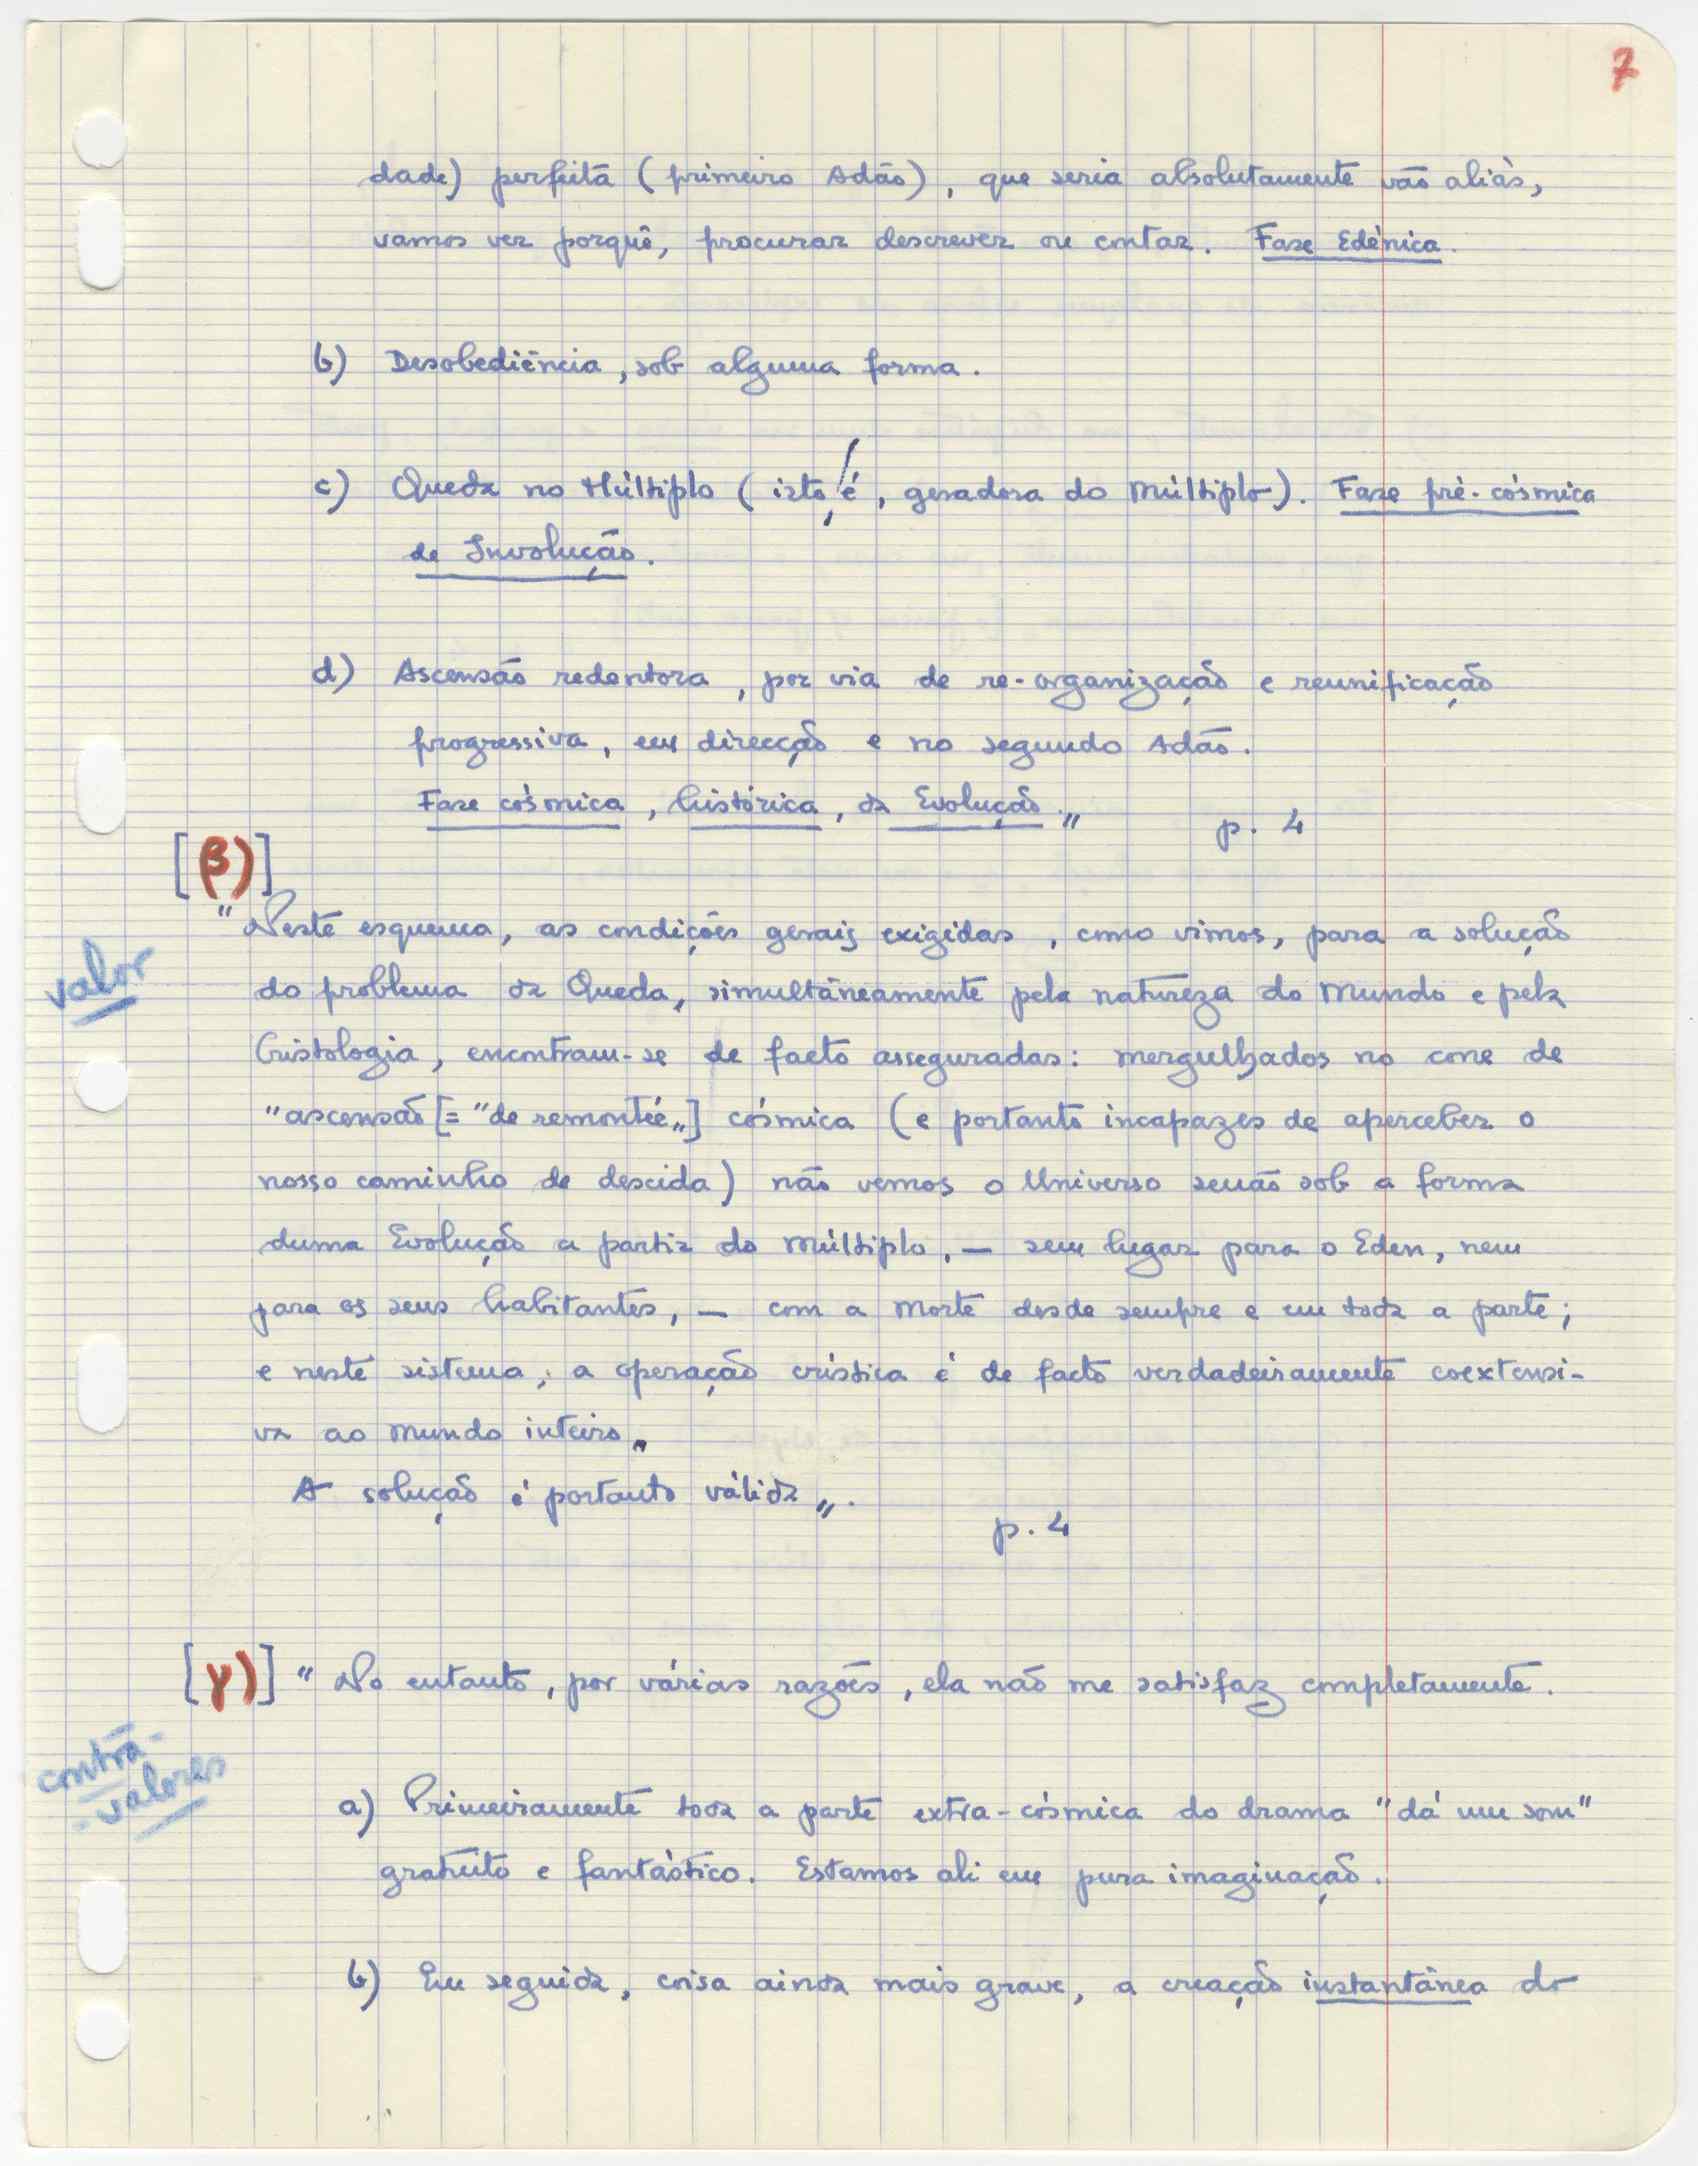 7
dade) perfeita (primeiro Adão), que seria absolutamente vão aliàs,
vamos ver porquê, procurar descrever ou contar. Fase Edènica.
b) Desobediência, sob alguma forma.
c) Queda no Múltiplo (isto, é, geradora do múltiplo). Fase prè-còsmica
de Involução.
d) Ascensão redentora, por via de re-organização e reunificação
progressiva, em direcção e no segundo Adão.
Fase còsmica, històrica, da Evolução.„ p. 4
[β)]
"Neste esquema, as condições gerais exigidas, como vimos, para a solução
valor
do problema da Queda, simultâneamente pela natureza do Mundo e pela
Cristologia, encontram-se de facto asseguradas: mergulhados no cone de
"ascensão [= "de remontée„] còsmica (e portanto incapazes de aperceber o
nosso caminho de descida) não vemos o Universo senão sob a forma
duma Evolução a partir do múltiplo, — sem lugar para o Eden, nem
para os seus habitantes, — com a Morte desde sempre e em toda a parte;
e neste sistema, a operação crística é de facto verdadeiramente coextensi-
va ao mundo inteiro„
A solução é portanto válida„.
p. 4
[γ)] "No entanto, por várias razões, ela não me satisfaz completamente.
contra-
-valores
a) Primeiramente toda a parte extra-còsmica do drama "dá um som"
gratuito e fantàstico. Estamos ali em pura imaginação.
b) Em seguida, coisa ainda mais grave, a creação instantânea do